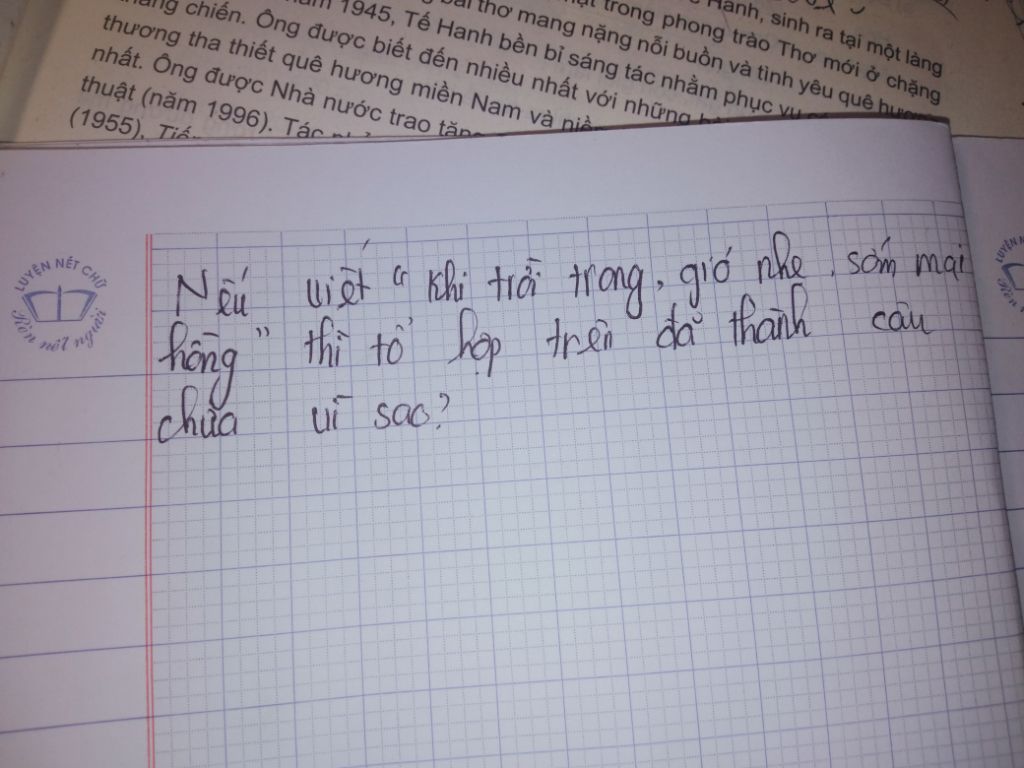 Hanh, sinh ra tại một làng
trong phong trào Thơ mới ở chặng
bài thơ mang nặng nỗi buồn và tình yêu quê hương
năm 1945, Tế Hanh bền bỉ sáng tác nhằm phục vụ
kháng chiến. Ông được biết đến nhiều nhất với những
thương tha thiết quê hương miền Nam và niềm
nhất. Ông được Nhà nước trao tặng
thuật (năm 1996). Tác
(1955),
LUYỆN NÉT CHỮ
Rèn nết người
Nếu viết " khi trời trong, gió nhẹ, sớm mai
hồng " thì tổ hợp trên đã thành câu
chưa vì sao?